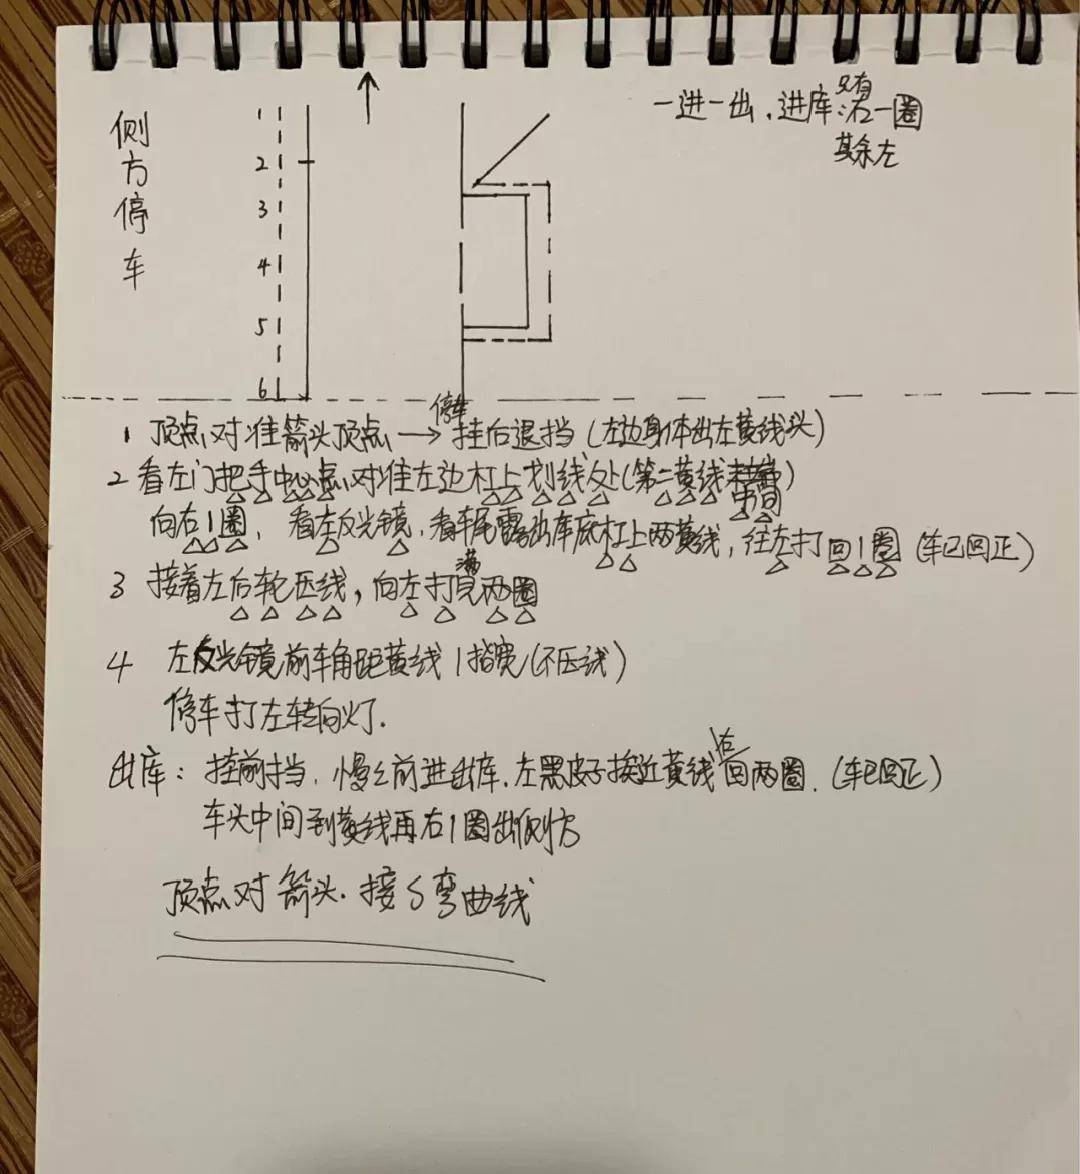 侧方停车
1
2
3
4
5
6
一进一出，进库：只有右一圈
其余左
1 顶点对准箭头顶点→停车挂后退挡（左边身体出左黄线头）
2 看左门把手中心点对准左边杠上划线处（第二黄线中间）
向右1圈，看左反光镜，看车尾露出库底杠上两黄线，往左打回1圈（车已回正）
3 接着左后轮压线，向左打满两圈
4 左反光镜前车角距黄线1指宽（不压线）
停车打左转向灯.
出库：挂前挡，慢慢前进出库，左黑皮子接近黄线右回两圈.（车已回正）
车头中间到黄线再右1圈出侧方
顶点对箭头.接S弯曲线